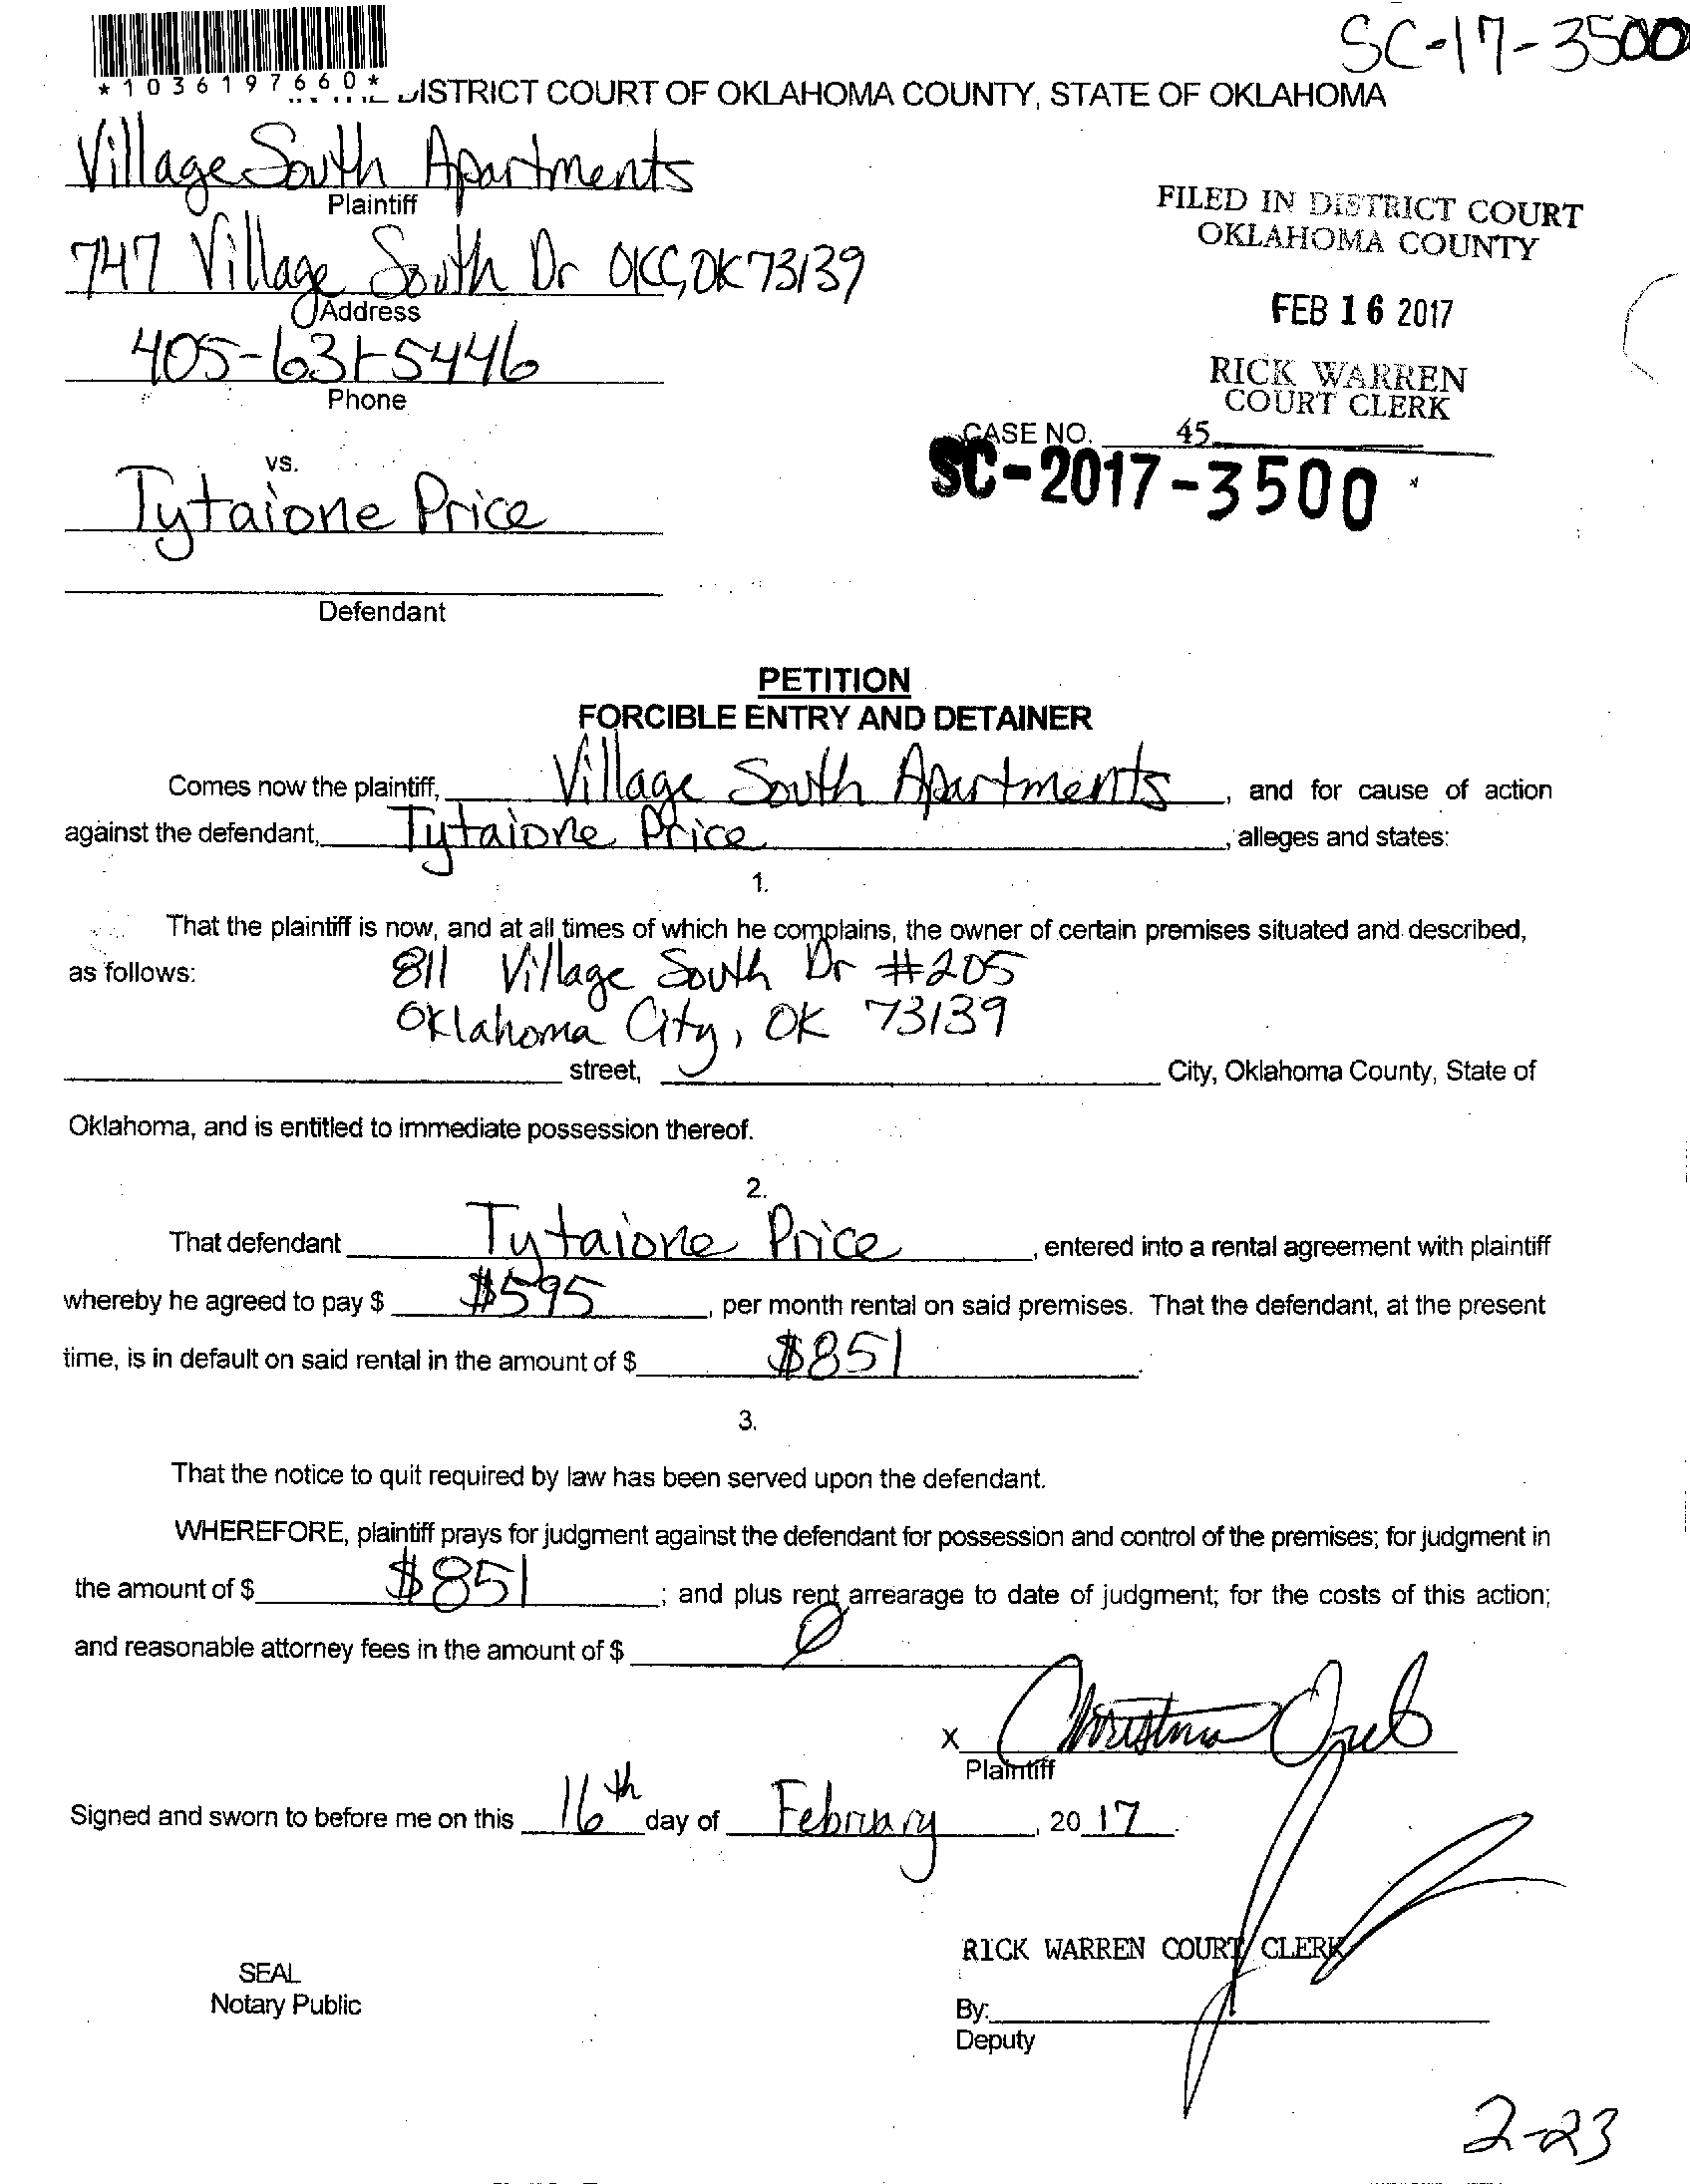 SC-17-3500
*1036197660*
DISTRICT COURT OF OKLAHOMA COUNTY, STATE OF OKLAHOMA
Village South Apartments
Plaintiff
747 Village South Dr OKC, OK 73139
Address
405-631-5446
Phone
FILED IN DISTRICT COURT
OKLAHOMA COUNTY
FEB 16 2017
RICK WARREN
COURT CLERK
45
CASE NO.
SC-2017-3500
vs.
Tytaione Price
Defendant
PETITION
FORCIBLE ENTRY AND DETAINER
Comes now the plaintiff, Village South Apartments, and for cause of action
against the defendant, Tytaione Price, alleges and states:
1.
That the plaintiff is now, and at all times of which he complains, the owner of certain premises situated and described,
as follows: 811 Village South Dr #205
Oklahoma City, OK 73139
street, City, Oklahoma County, State of
Oklahoma, and is entitled to immediate possession thereof.
2.
That defendant Tytaione Price, entered into a rental agreement with plaintiff
whereby he agreed to pay $ $595, per month rental on said premises. That the defendant, at the present
time, is in default on said rental in the amount of $ $851.
3.
That the notice to quit required by law has been served upon the defendant.
WHEREFORE, plaintiff prays for judgment against the defendant for possession and control of the premises; for judgment in
the amount of $ $851; and plus rent arrearage to date of judgment; for the costs of this action;
and reasonable attorney fees in the amount of $ 0
X
Plaintiff
Signed and sworn to before me on this 16th day of February, 2017.
RICK WARREN COURT CLERK
SEAL
Notary Public
By:
Deputy
2-23